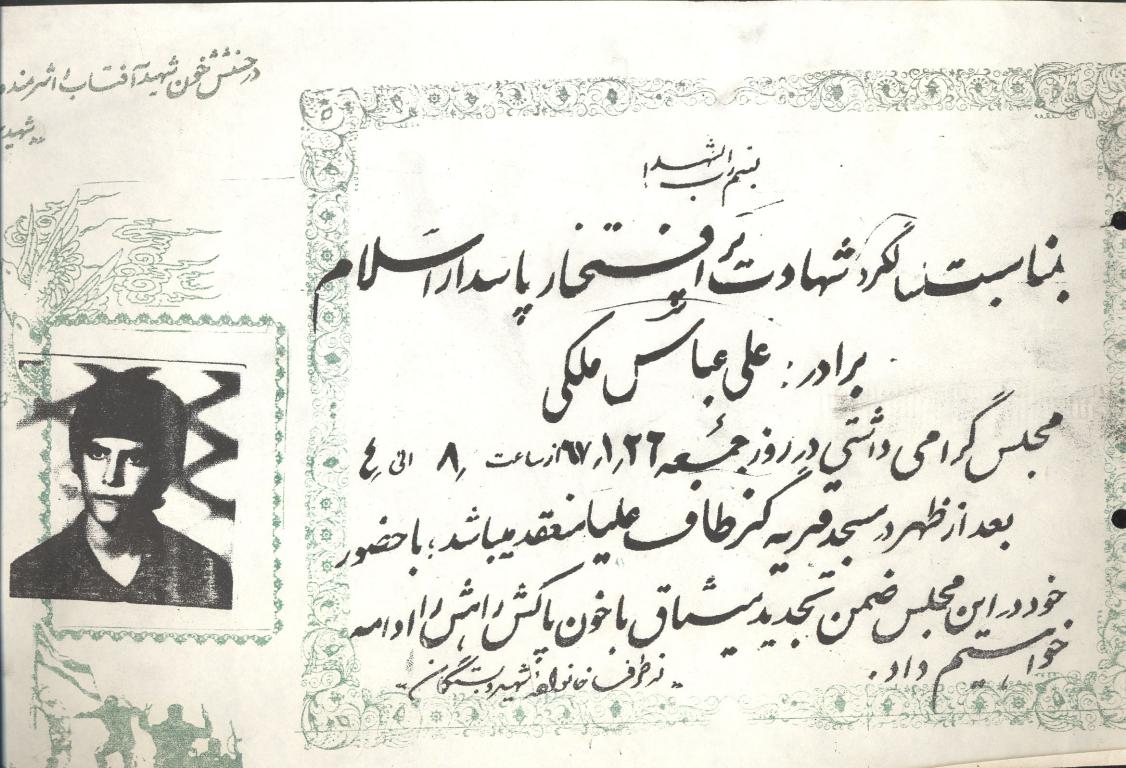 در جشنش خون شهید آفتاب را شرمنده
شهید
بسم رب الشهدا
بمناسبت سالگرد شهادت پر افتخار پاسدار اسلام
برادر: علی عباس ملکی
مجلس گرامی داشتی در روز جمعه ۶۷/۱/۲۶ از ساعت ۸ الی ٤
بعد از ظهر در مسجد قریه علیا منعقد میباشد؛ با حضور
خود در این مجلس ضمن تجدید میثاق با خون پاکش راهش را ادامه
خواهیم داد.
از طرف خانواده شهید و بستگان